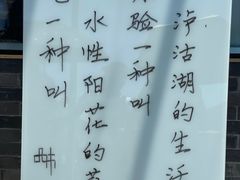 泸沽湖的生活
验一种叫
水性阳花的
一种叫